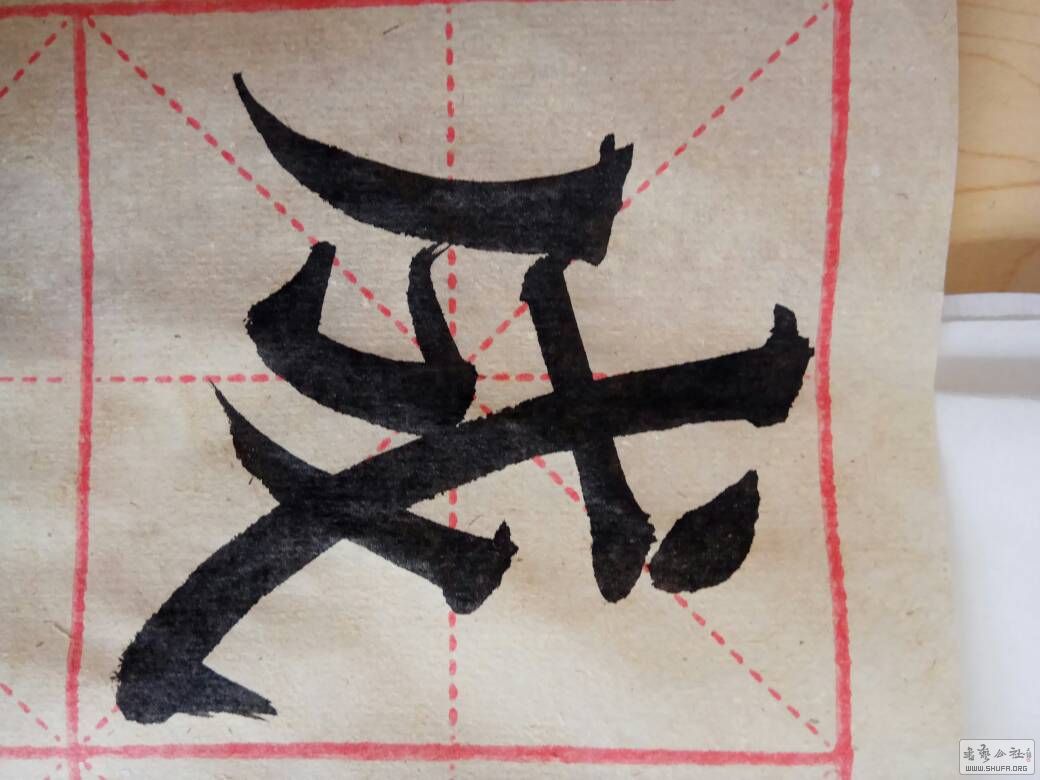 成
書藝公社
WWW.SHUFA.ORG